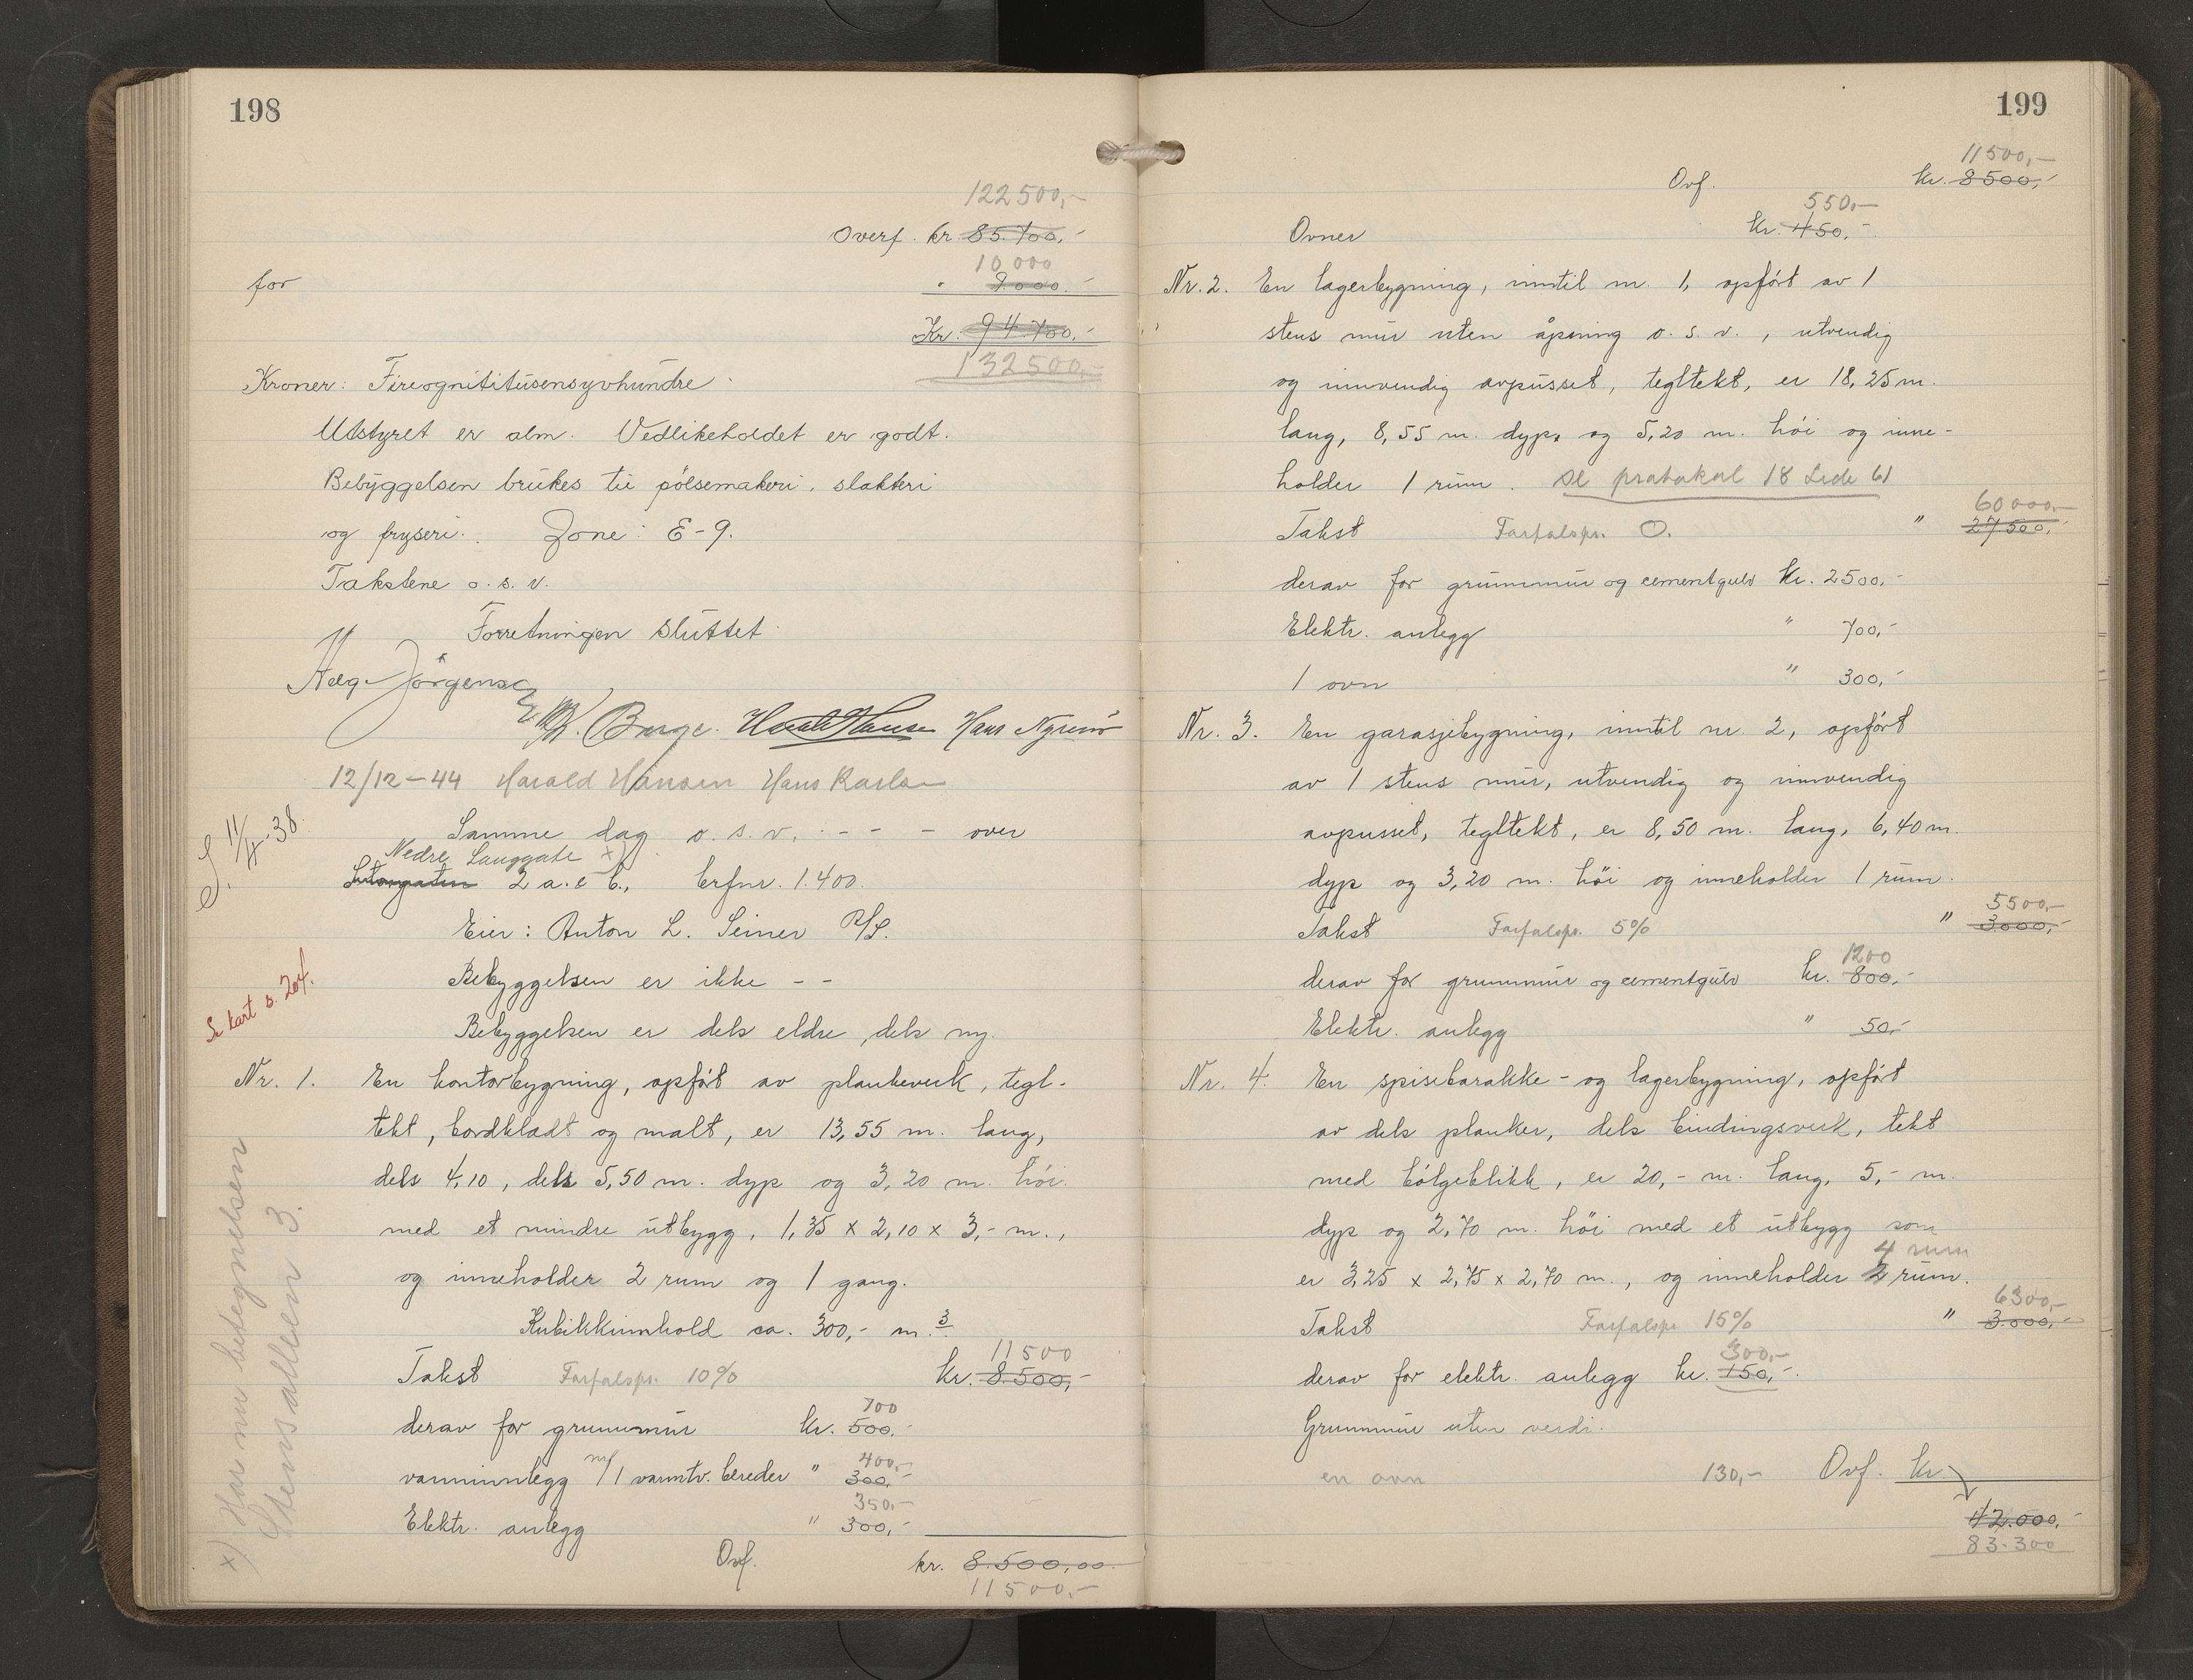 198
122500,-
Overf. kr. 85.700,-
10,000
for " 9.000.-
Kr. 94.700,-
132500,-
Kroner: Fireognititusensyvhundre
Utstyret er alm. Vedlikeholdet er godt.
Bebyggelsen brukes til pölsemakeri, slakteri
og fryseri. Zone: E-9.
Takstene o. s. v.
Forretningen sluttet.
Helge Jörgensen
Borge. Harald Hansen Hans
12/12-44 Harald Hansen Hans Karlsen
Samme dag o. s. v. - - - over
Nedre Langgate x)
2 a. & b., brfnr. 1.400.
Eier: Anton L. Seiner A/S.
Bebyggelsen er ikke - -
Se kart s. 204.
Bebyggelsen er dels eldre, dels ny.
Nr. 1. En kontorbygning, opført av plankeverk, tegl-
tekt, bordkledt og malt, er 13,55 m. lang,
dels 4,10, dels 5,50 m. dyp og 3,20 m. höi.
med et mindre utbygg, 1,35 x 2,10 x 3,- m.,
og inneholder 2 rum og 1 gang.
Kubikkinnhold ca. 300,- m.3
11500
Takst Forfalspr. 10% kr. 8.500,-
700
derav for grunnmur kr. 500,-
400,-
varminnlegg m/1 varmtv. bereder " 300,-
350,-
Elektr. anlegg " 300,-
Ovf. kr. 8.500,00
11500,-
x) Har nu betegnelsen
Steinsalleen 3.
199
11500,-
Ovf. kr. 8500,-
550,-
Ovner kr. 450,-
Nr. 2. En lagerbygning, inntil nr. 1, opfört av 1
stens mur uten åpning o. s. v., utvendig
og innvendig avpusset, tegltekt, er 18,25 m.
lang, 8,55 m. dyp, og 5,20 m. höi og inne-
holder 1 rum. Se protokol 18 side 61
60000,-
Takst Forfalspr. 0. " 27500,-
derav for grunnmur og cementgulv kr. 2500,-
Elektr. anlegg " 700,-
1 ovn " 300,-
Nr. 3. En garasjebygning, inntil nr. 2, opfört
av 1 stens mur, utvendig og innvendig
avpusset, tegltekt, er 8,50 m. lang, 6,40 m.
dyp og 3,20 m. höi og inneholder 1 rum.
5500,-
Takst Forfalspr. 5% " 3.000,-
1200
derav for grunnmur og cementgulv kr. 800,-
Elektr. anlegg " 50,-
Nr. 4. En spisebarakke- og lagerbygning, opfört
av dels planker, dels bindingsverk, tekt
med bölgeblikk, er 20,- m. lang, 5,- m.
dyp og 2,70 m. höi med et utbygg som
4 rum
er 3,25 x 2,75 x 2,70 m., og inneholder 2 rum.
6300,-
Takst Forfalspr 15% " 3.000,-
300,-
derav for elektr. anlegg kr. 150,-
Grunnmur uten verdi.
en ovn 130,- Ovf. kr.
42.000,-
83.300